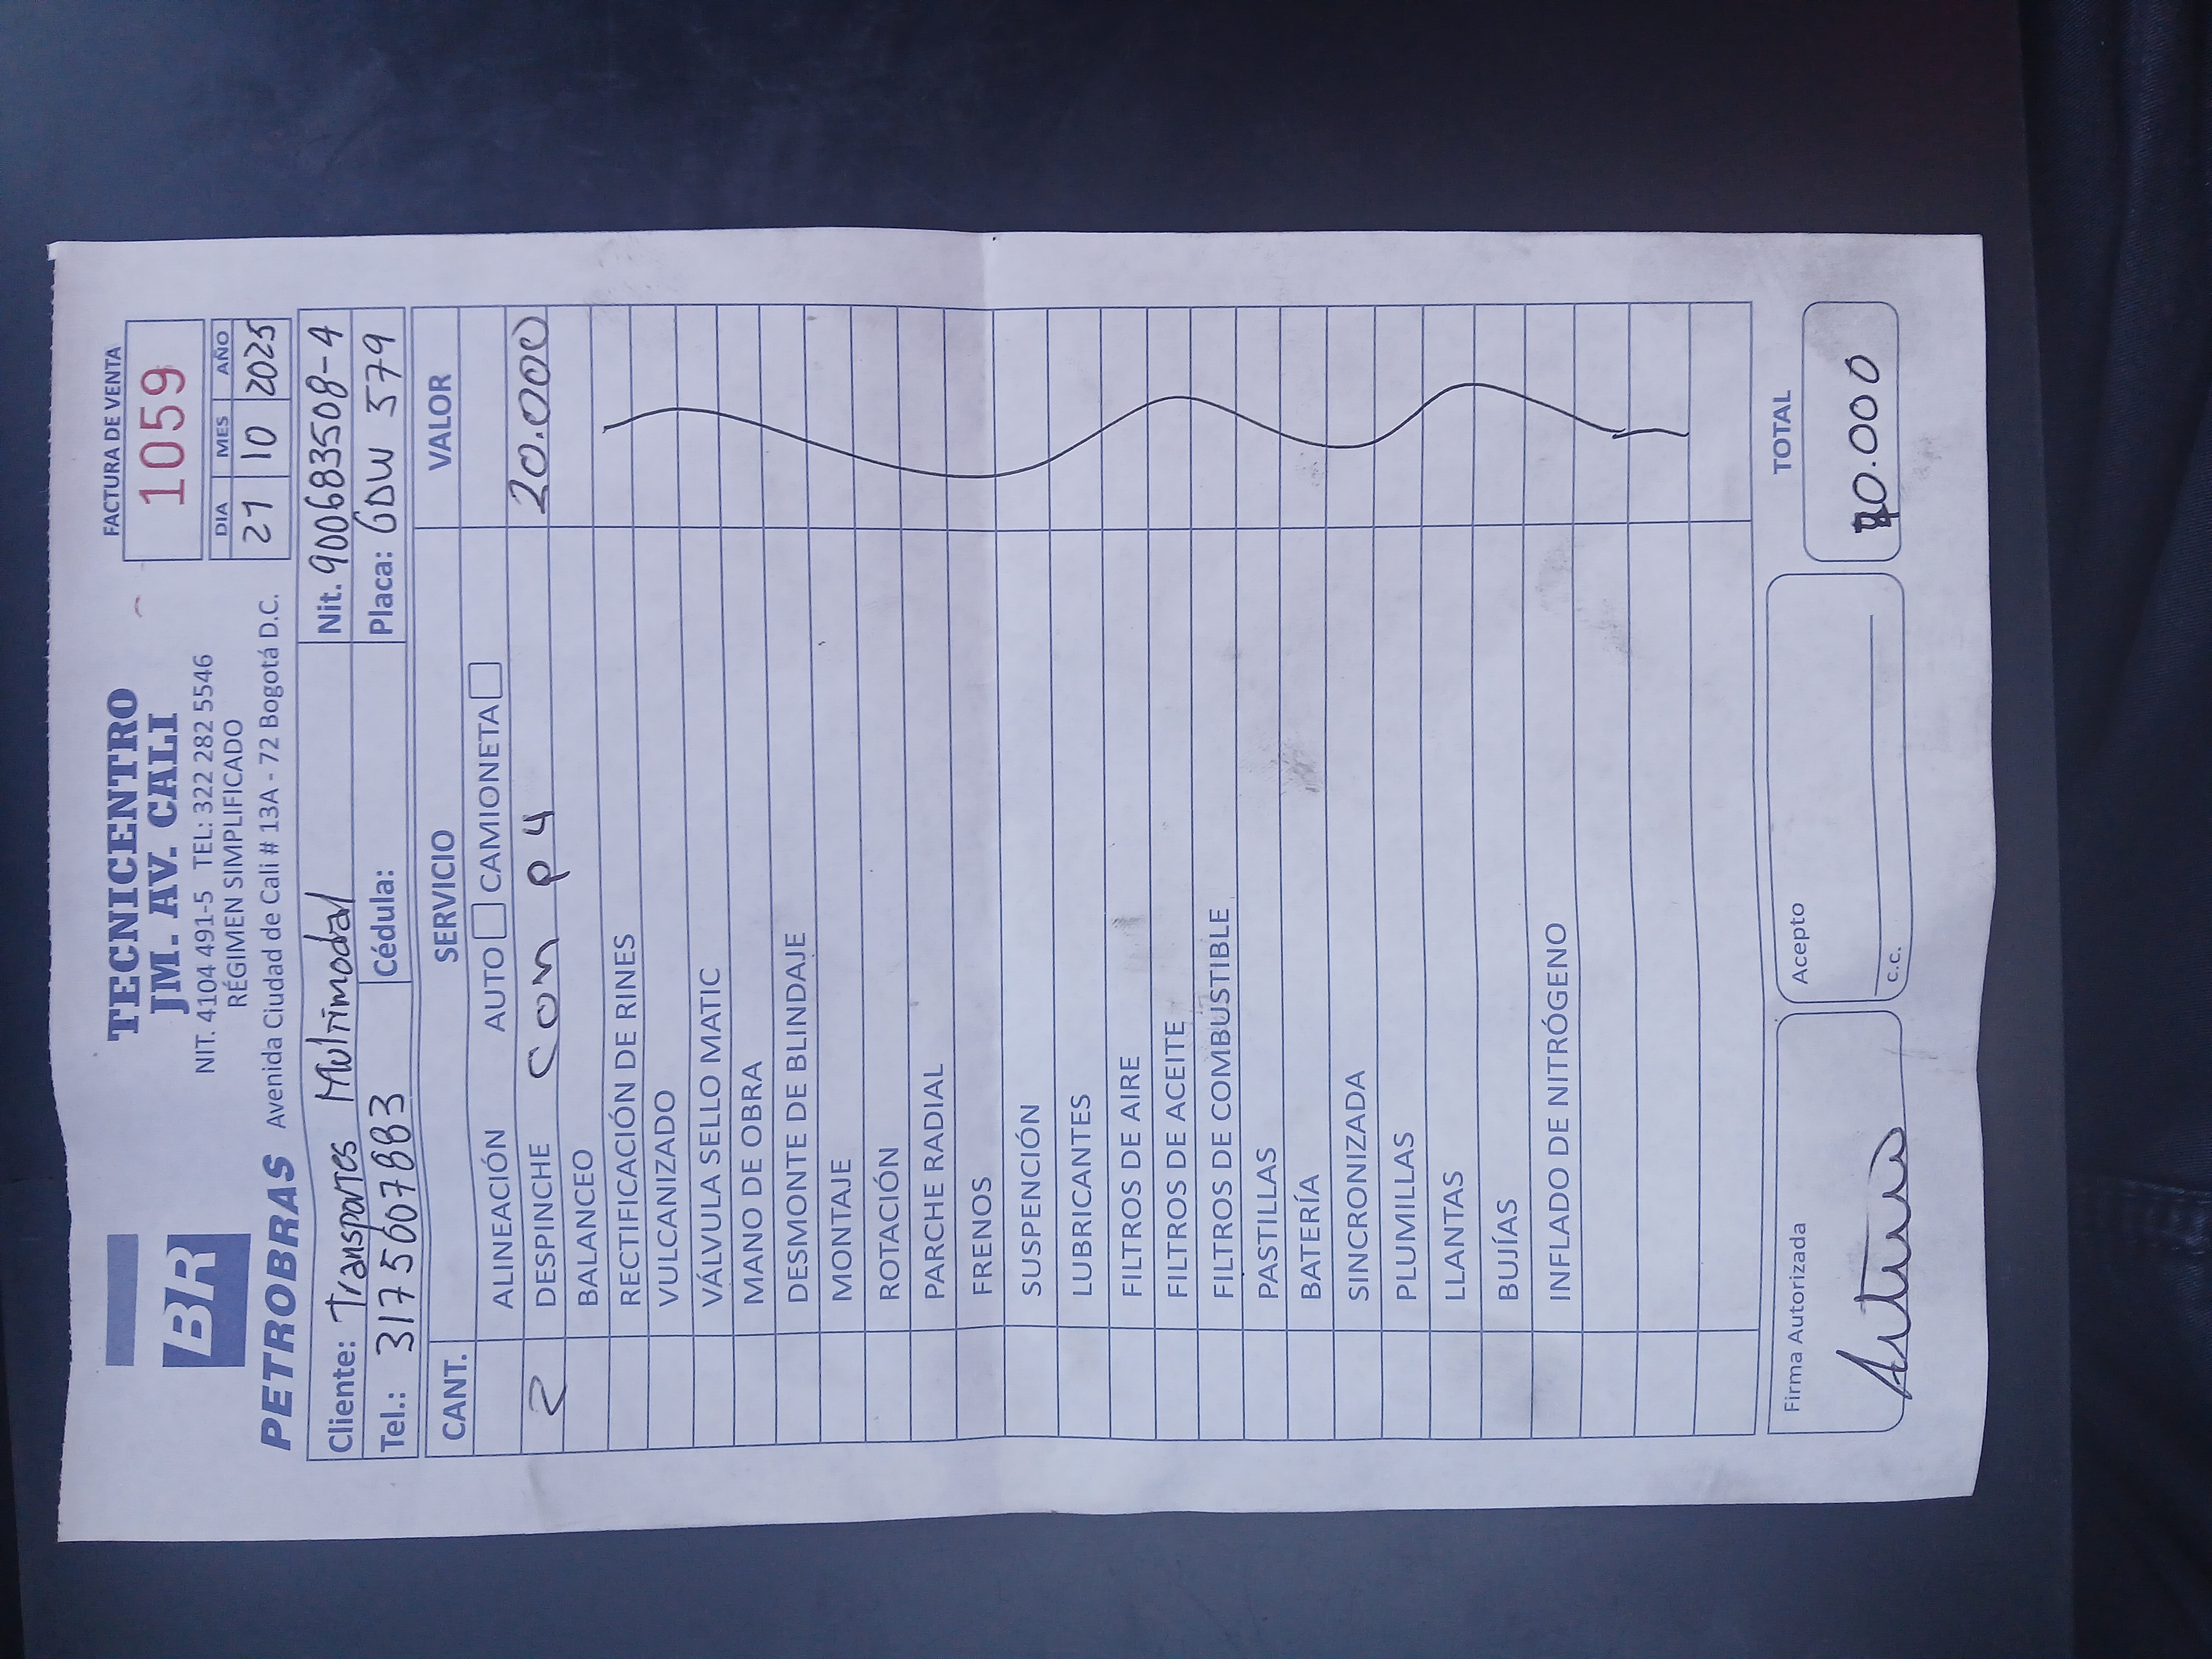 BR
PETROBRAS
TECNICENTRO
JM. AV. CALI
NIT. 4104 491-5 TEL: 322 282 5546
RÉGIMEN SIMPLIFICADO
Avenida Ciudad de Cali # 13A - 72 Bogotá D.C.
FACTURA DE VENTA
1059
DIA MES AÑO
21 10 2025
Cliente: Transportes Multimodal Nit. 900683508-4
Tel.: 3175007883 Cédula: Placa: GDW 579
CANT. SERVICIO VALOR
ALINEACIÓN AUTO CAMIONETA
2 DESPINCHE con p4 20.000
BALANCEO
RECTIFICACIÓN DE RINES
VULCANIZADO
VÁLVULA SELLO MATIC
MANO DE OBRA
DESMONTE DE BLINDAJE
MONTAJE
ROTACIÓN
PARCHE RADIAL
FRENOS
SUSPENCIÓN
LUBRICANTES
FILTROS DE AIRE
FILTROS DE ACEITE
FILTROS DE COMBUSTIBLE
PASTILLAS
BATERÍA
SINCRONIZADA
PLUMILLAS
LLANTAS
BUJÍAS
INFLADO DE NITRÓGENO
Firma Autorizada
Acepto
c.c.
TOTAL